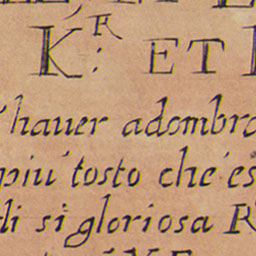 K.R ET
hauer adombra
piu' tosto che es
di si gloriosa R